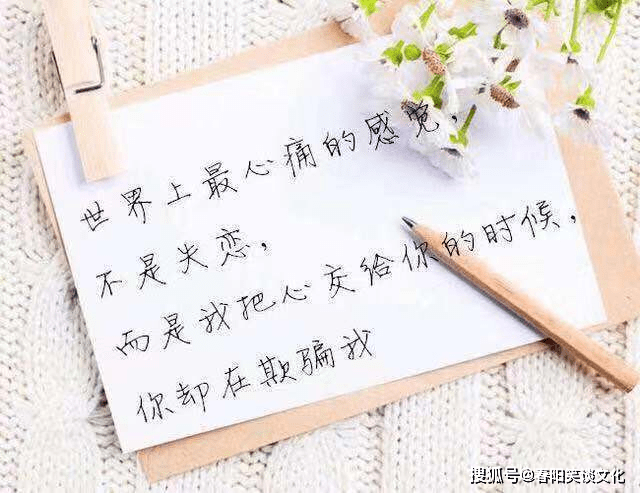 世界上最心痛的感觉,
不是失恋,
而是我把心交给你的时候,
你却在欺骗我
搜狐号@春阳笑谈文化